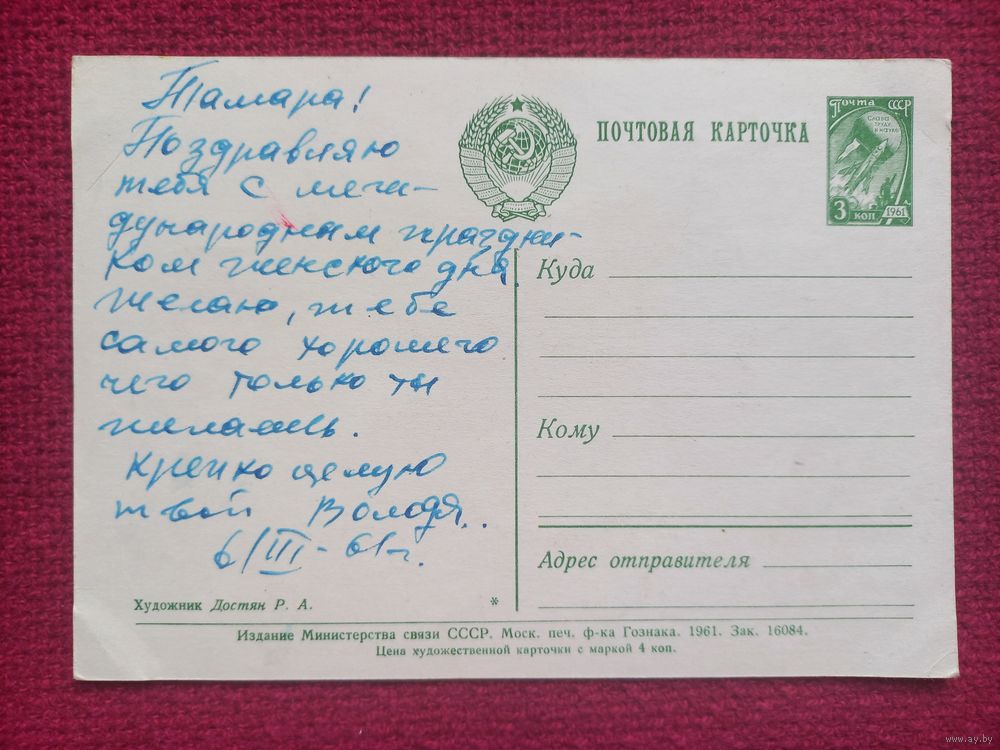 Тамара!
Поздравляю
тебя с меж-
дународным праздни-
ком женского дня.
желаю, тебе
самого хорошего
чего только ты
желаешь.
Крепко целую
твой Володя..
6/III-61 г.
ПОЧТОВАЯ КАРТОЧКА
Почта СССР
Слава
труду
и науке
3 коп
1961
Куда
Кому
Адрес отправителя
Художник Достян Р. А.
*
Издание Министерства связи СССР. Моск. печ. ф-ка Гознака. 1961. Зак. 16084.
Цена художественной карточки с маркой 4 коп.
www.ay.by